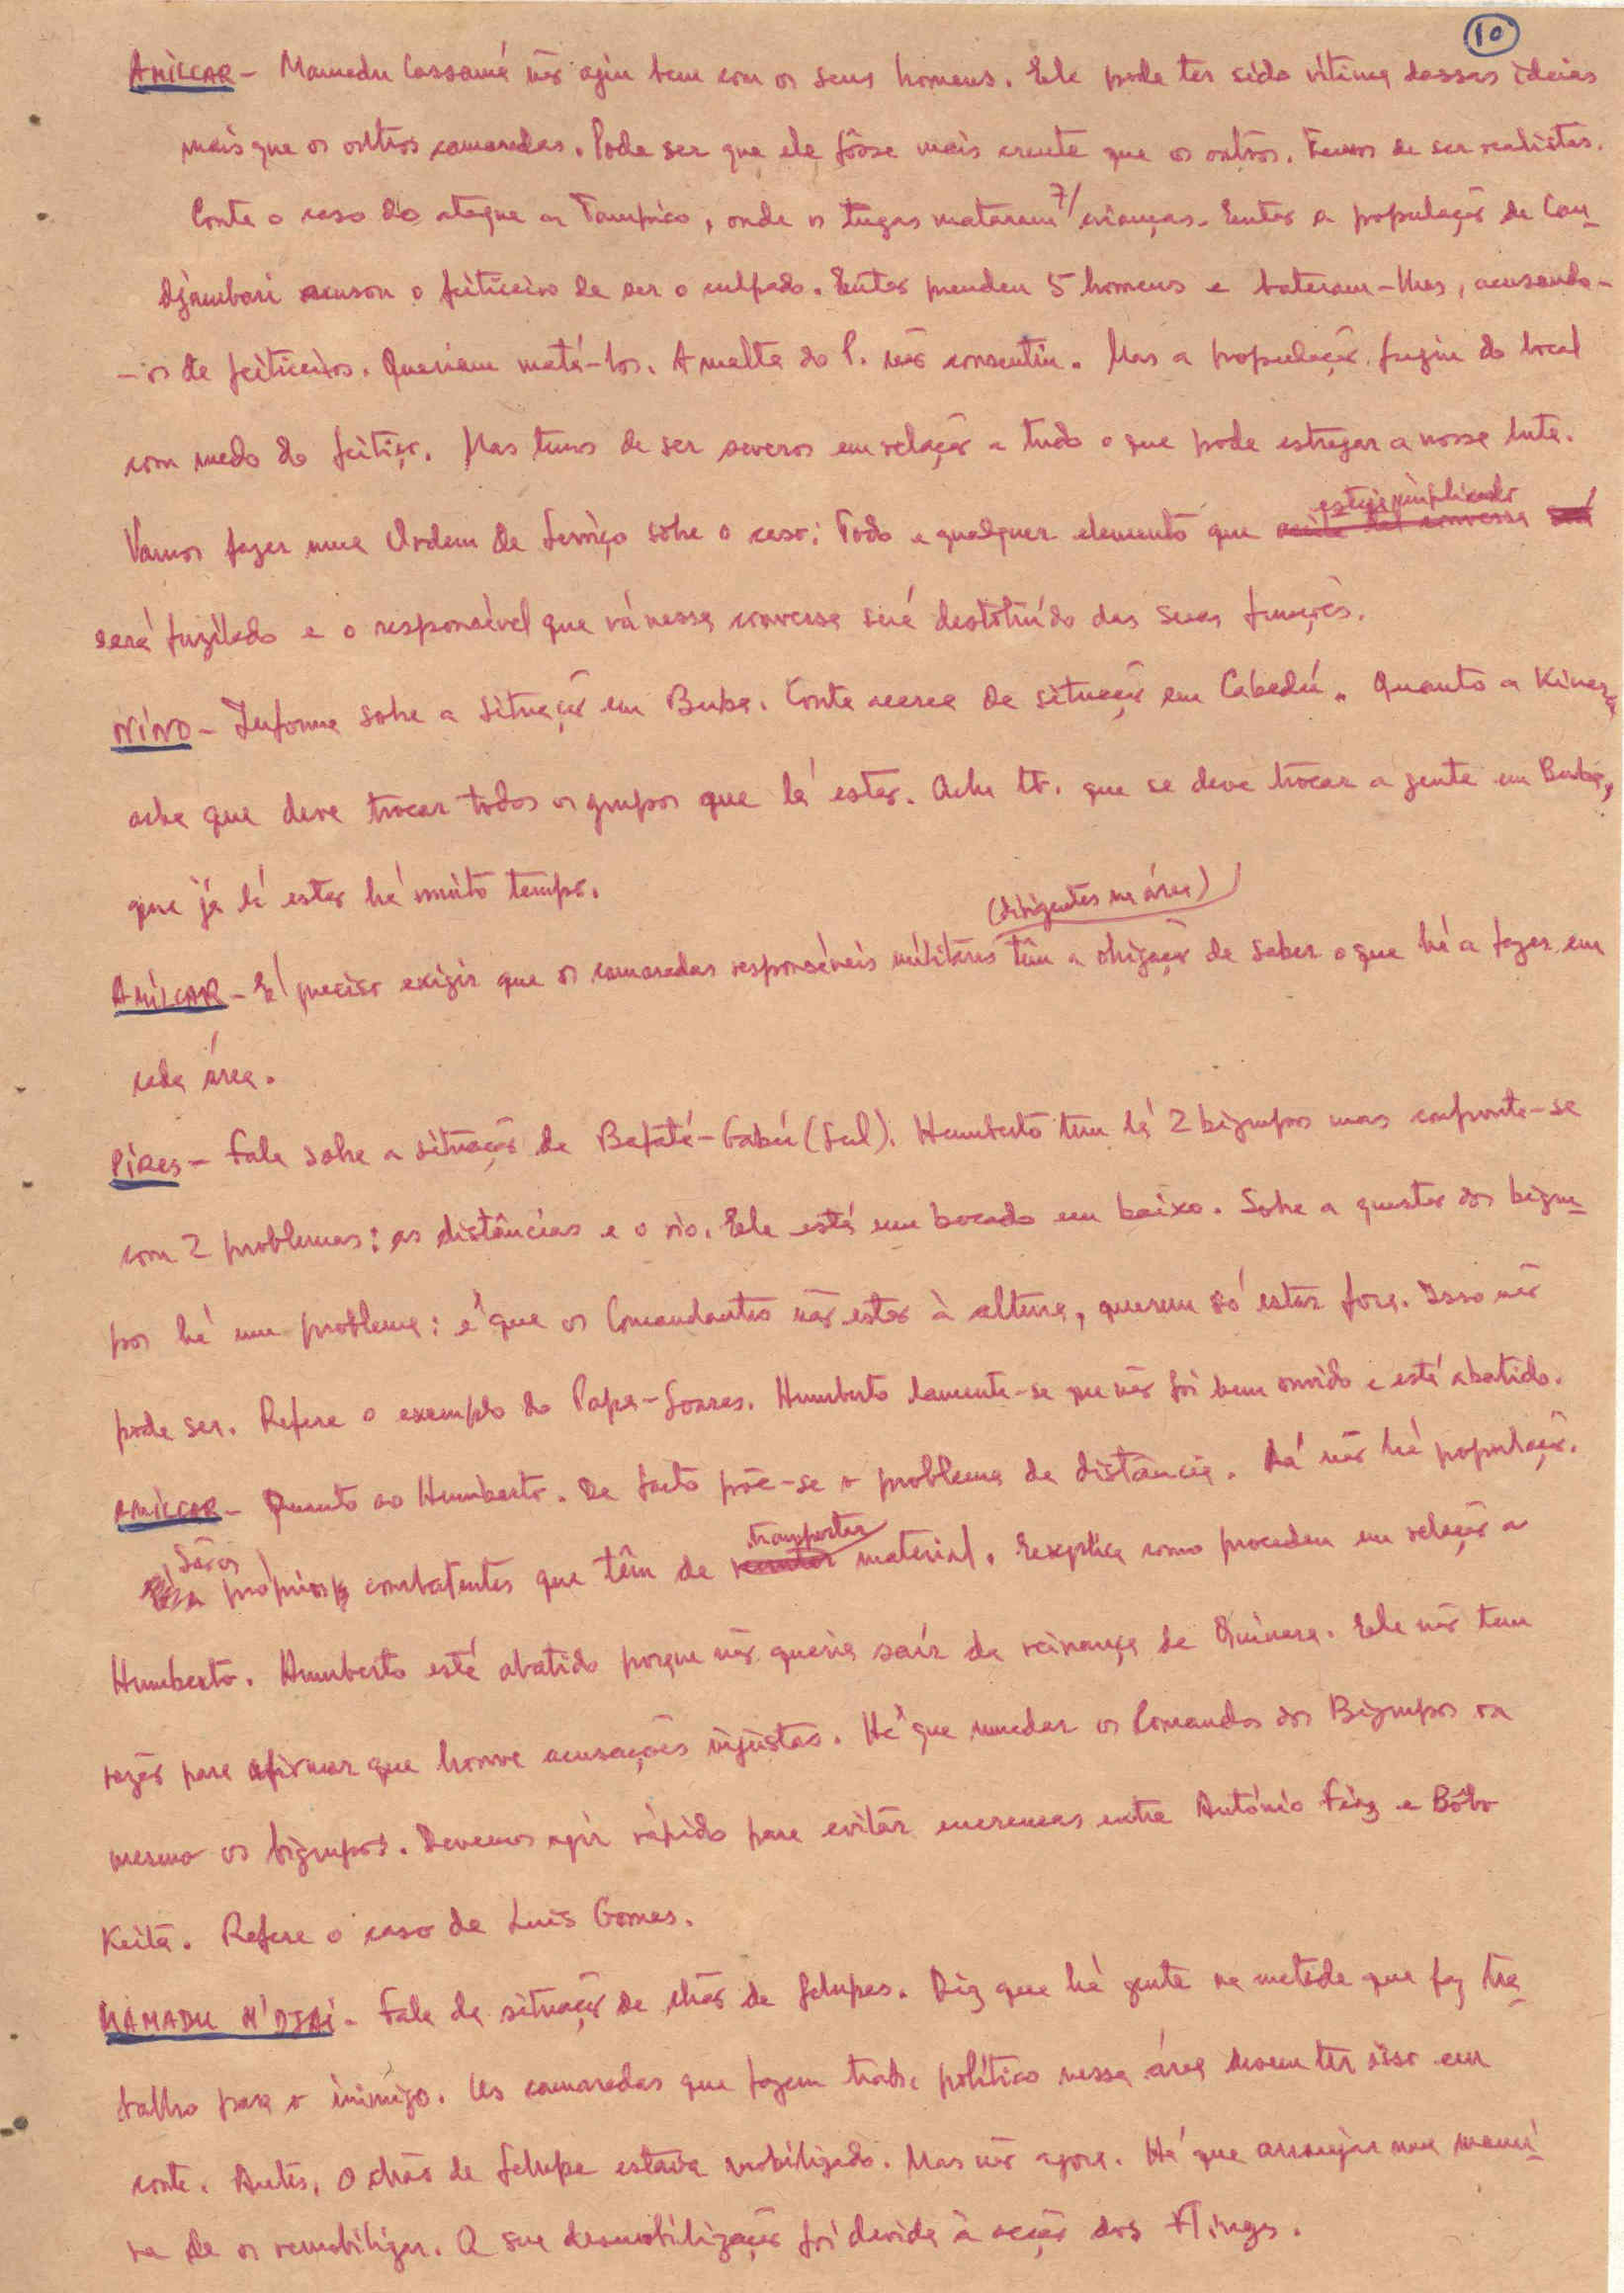 10
AMÍLCAR - Mamadu Cassamá não agiu bem com os seus homens. Ele pode ter sido vítima dessas ideias
mais que os outros camaradas. Pode ser que ele fôsse mais crente que os outros. Temos de ser realistas.
Conta o caso do ataque a Tampico, onde os tugas mataram 7/ crianças. Então a população de Can-
djambari acusou o feiticeiro de ser o culpado. Então prendeu 5 homens e bateram-lhes, acusando-
-os de feiticeiros. Queriam matá-los. A malta do P. não consentiu. Mas a população fugiu do local
com medo do feitiço. Mas temos de ser severos em relação a tudo o que pode estragar a nossa luta.
esteja implicado
Vamos fazer uma Ordem de Serviço sôbre o caso: Todo e qualquer elemento que
será fuzilado e o responsável que vá nessa conversa será destituído das suas funções.
NINO - Informa sobre a situação em Buba. Conta acerca da situação em Cabedú. Quanto a Kinara,
acha que deve trocar todos os grupos que lá estão. Acha tb. que se deve trocar a gente em Buba,
que já lá estão há muito tempo.
(dirigentes na área)
AMÍLCAR - É preciso exigir que os camaradas responsáveis militares têm a obrigação de saber o que há a fazer em
cada área.
PIRES - Fala sobre a situação de Bafatá-Gabú (Sul). Humberto tem lá 2 bigrupos mas confronta-se
com 2 problemas: as distâncias e o rio. Ele está um bocado em baixo. Sobre a questão dos bigru-
pos há um problema: é que os Comandantes não estão à altura, querem só estar fora. Isso não
pode ser. Refere o exemplo do Papa-Soares. Humberto lamenta-se que não foi bem ouvido e está abatido.
AMÍLCAR - Quanto ao Humberto. De facto põe-se o problema da distância. Lá não há população.
São os transportar
próprios combatentes que têm de material. Explica como procedeu em relação a
Humberto. Humberto está abatido porque não queria sair da vizinança de Quinara. Ele não tem
razão para afirmar que houve acusações injustas. Há que mudar os Comandos dos Bigrupos ou
mesmo os bigrupos. Devemos agir rápido para evitar encrencas entre António Fiaz e Bôbo
Keita. Refere o caso de Luís Gomes.
MAMADU N'DJAI - Fala da situação de chão de Felupes. Diz que há gente na metade que faz tra-
balho para o inimigo. Os camaradas que fazem trab. político nessa área devem ter isso em
conta. Antes, o chão de Felupe estava mobilizado. Mas não agora. Há que arranjar uma manei-
ra de os remobilizar. A sua desmobilização foi devida à acção dos Flingas.